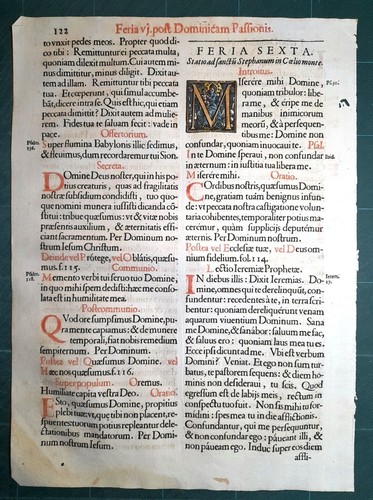 122
Feria vj. post Dominicam Passionis.
to vnxit pedes meos. Propter quod di-
co tibi: Remittuntur ei peccata multa,
quoniam dilexit multum. Cui autem mi-
nus dimittitur, minus diligit. Dixit au-
tem ad illam. Remittuntur tibi peccata
tua. Et cœperunt, qui simul accumbe-
bāt, dicere intra se. Quis est hic, qui etiam
peccata dimittit? Dixit autem ad mulie-
rem. Fides tua te saluam fecit: vade in
pace.
Offertorium.
Psalm. 136.
Super flumina Babylonis illic sedimus,
& fleuimus, dum recordaremur tui Sion.
Secreta.
Domine Deus noster, qui in his po-
tius creaturis, quas ad fragilitatis
nostræ subsidium condidisti, tuo quo-
que nomini munera iussisti dicanda cōn-
titui: tribue quæsumus: vt & vitæ nobis
præsentis auxilium, & æternitatis effi-
ciant sacramentum. Per Dominum no-
strum Iesum Christum.
Deinde vel Protege, vel Oblatis, quæsu-
mus. f. 115. Communio.
Psalm. 118.
Memento verbi tui seruo tuo Domine,
in quo mihi spem dedisti: hæc me conso-
lata est in humilitate mea.
Postcommunio.
Quod ore sumpsimus Domine, pu-
ra mente capiamus: & de munere
temporali, fiat nobis remedium
sempiternum. Per Dominum.
Postea vel Quæsumus Domine. vel
Hæc nos quæsumus. f. 116.
Super populum. Oremus.
Humiliate capita vestra Deo. Oratio.
Esto, quæsumus Domine, propitius
plebi tuæ: vt, quæ tibi non placent, re-
spuentes: tuorum potius repleantur dele-
ctationibus mandatorum. Per Domi-
num nostrum Iesum.
FERIA SEXTA.
Statio ad sanctū Stephanum in Cœlio monte.
Introitus.
Psal. 30.
Miserere mihi Domine,
quoniam tribulor: libe-
ra me, & eripe me de
manibus inimicorum
meorū, & à persequen-
tibus me: Domine non
confundar, quoniam inuocaui te. Psal.
In te Domine speraui, non confundar
in æternum: in iustitia tua libera me.
Miserere mihi. Oratio.
Cordibus nostris, quæsumus Domi-
ne, gratiam tuam benignus infun-
de: vt peccata nostra castigatione volun-
taria cohibentes, temporaliter potius ma-
ceremur, quàm suppliciis deputemur
æternis. Per Dominum nostrum.
Postea vel Ecclesiæ tuæ, vel Deus om-
nium fidelium. fol. 114.
Lectio Ieremiæ Prophetæ.
Ierem. 17.
In diebus illis: Dixit Ieremias. Do-
mine, omnes qui te derelinquūt, con-
fundentur: recedentes à te, in terra scri-
bentur: quoniam dereliquerunt venam
aquarum viuentium Dominum. Sana
me Domine, & sanabor: saluum me fac,
& saluus ero: quoniam laus mea tu es.
Ecce ipsi dicunt ad me. Vbi est verbum
Domini? Veniat. Et ego non sum tur-
batus, te pastorem sequens: & diem ho-
minis non desideraui, tu scis. Quod
egressum est de labijs meis, rectum in
conspectu tuo fuit. Non sis mihi tu for-
midini: spes mea tu in die afflictionis.
Confundantur, qui me persequuntur,
& non confundar ego: paueant illi, &
non paueam ego. Induc super eos diem
affli-